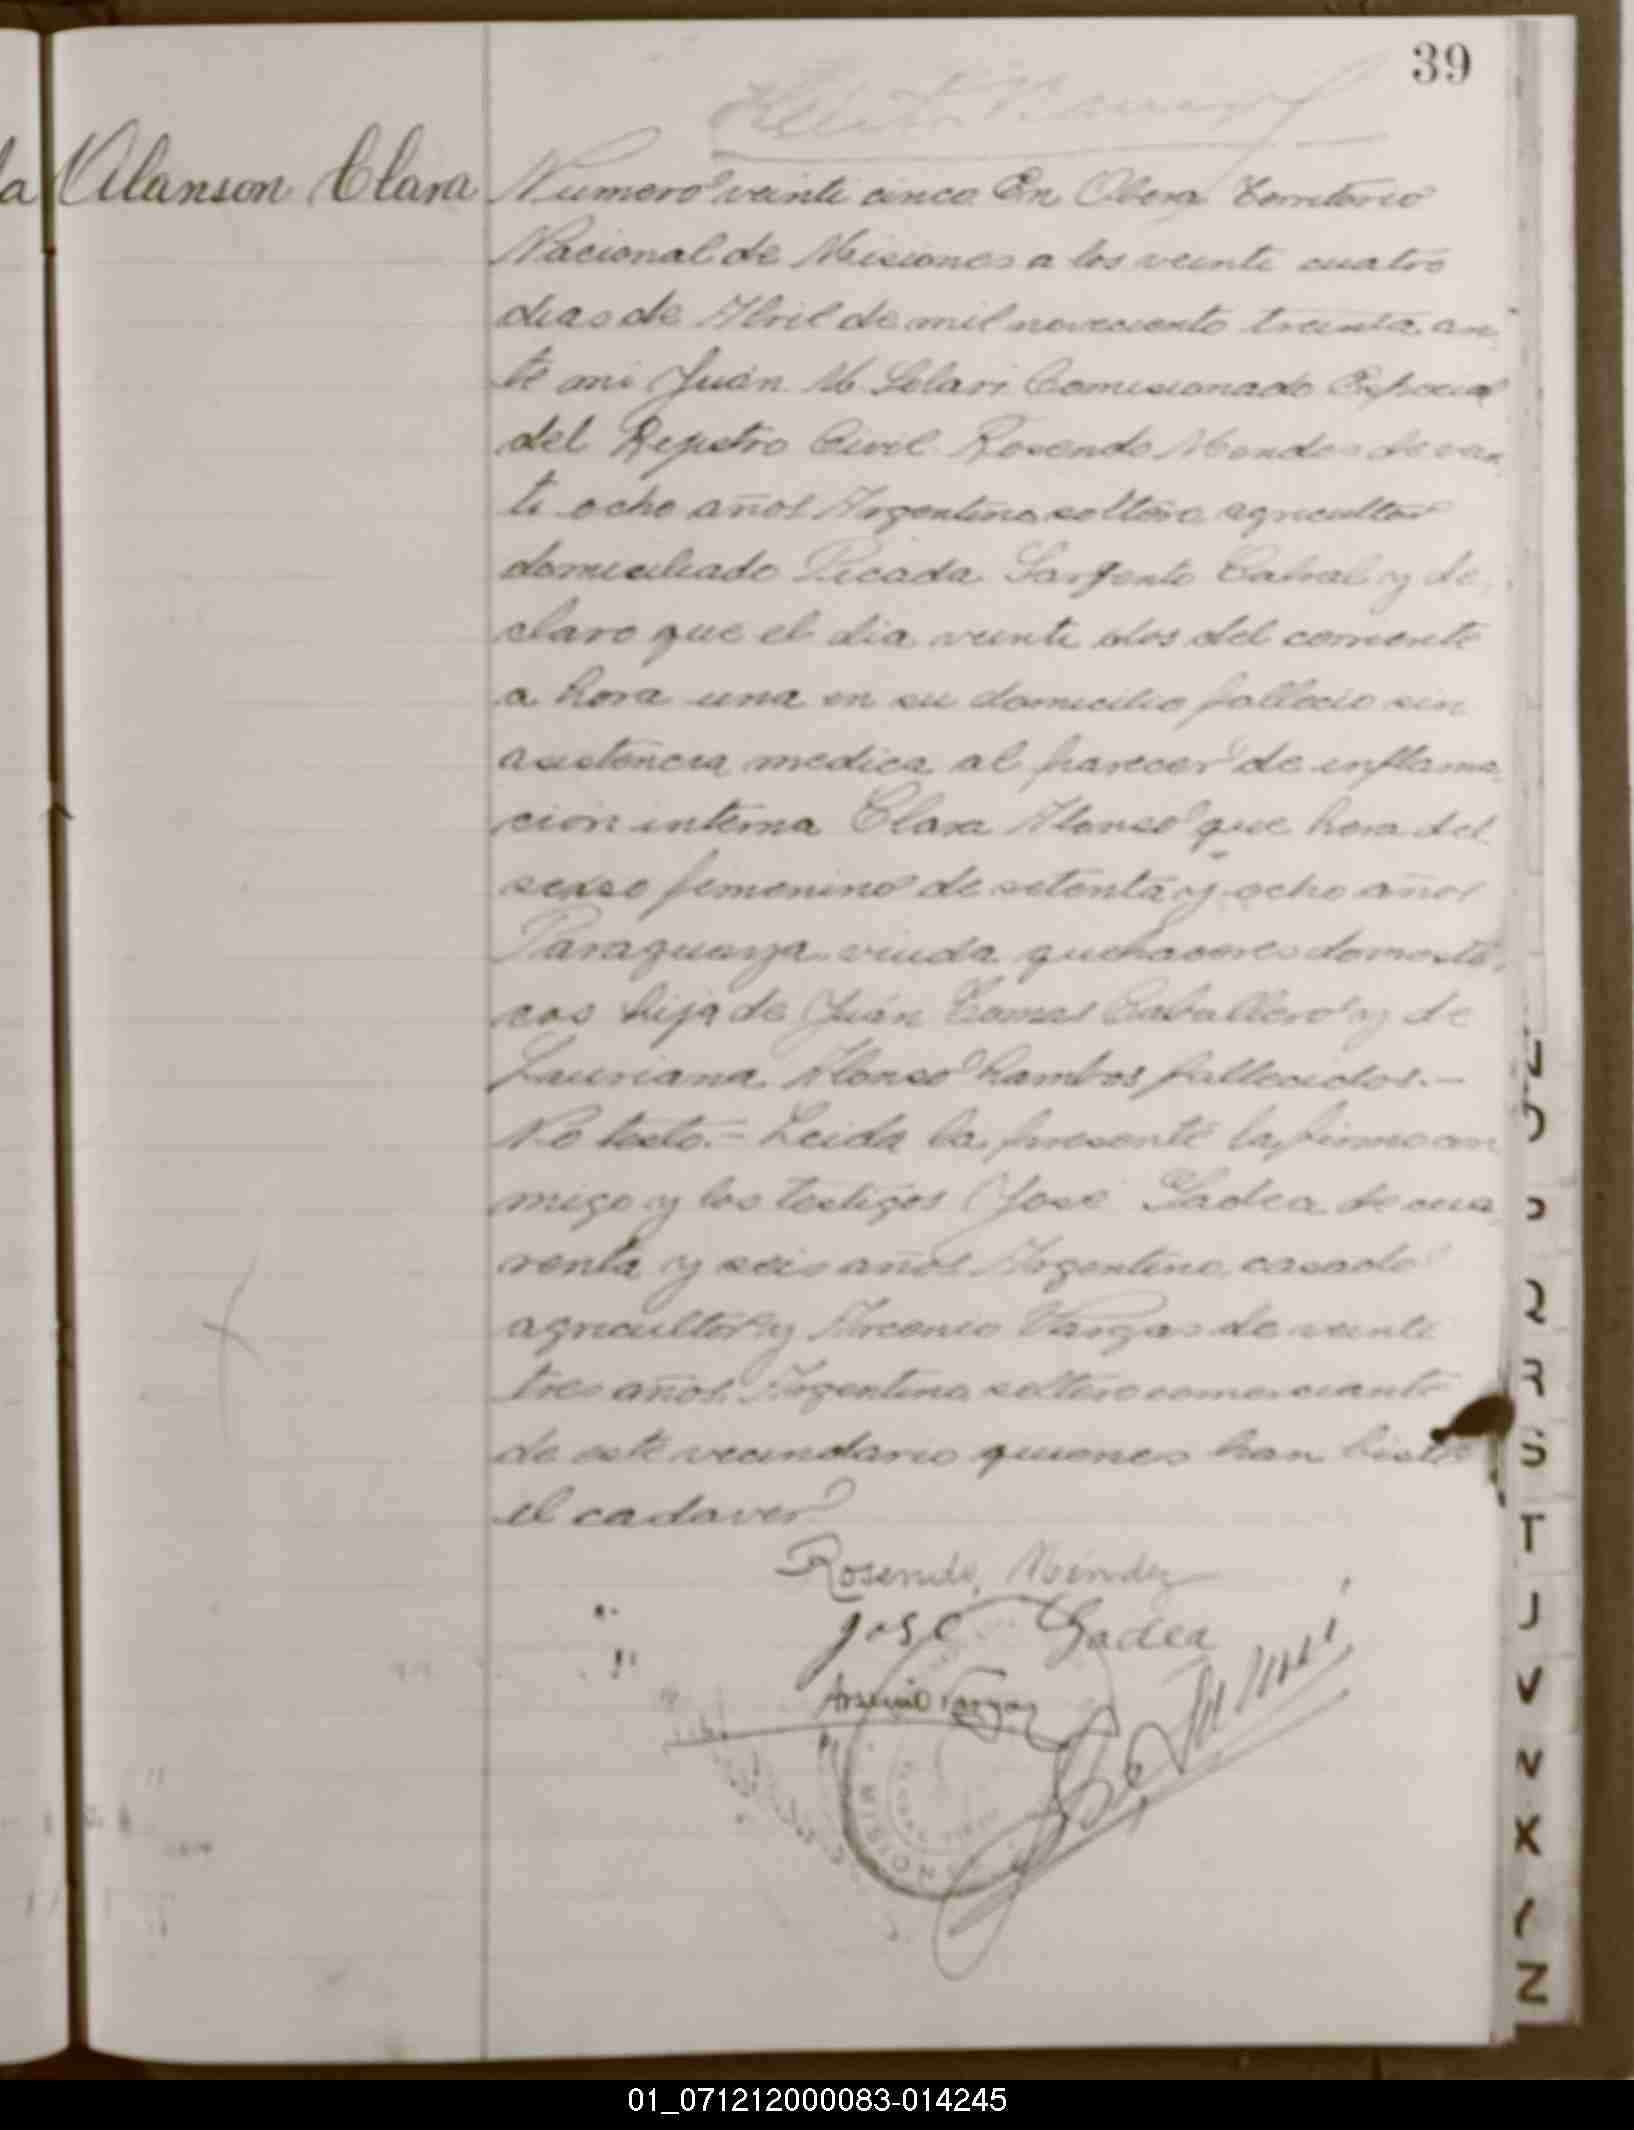 39
Alanson Clara
Numero veinti cinco En Obera Territorio
Nacional de Misiones a los veinti cuatro
dias de Abril de mil noveciento treinta an
te mi Juan M. Lelari Comisionado Especial
del Rejistro Civil Rosendo Mendes de vein
ti ocho años Argentino soltero agricultor
domiciliado Picada Sargento Cabral y de
claro que el dia veinti dos del corriente
a hora una en su domicilio fallecio sin
asistencia medica al parecer de inflama
cion interna Clara Alonso que hera del
sexso femenino de setenta y ocho años
Paraguaya viuda quehaceres domesti
cos hija de Juan Tomas Caballero y de
Lauriana Alonso hambos fallecidos.—
No testo.— Leida la presente la firmo con
migo y los testigos José Gadea de cua
renta y seis años Argentino casado
agricultor y Arcenio Vargas de veinti
tres años Argentino soltero comerciante
de este vecindario quienes han bisto
el cadaver
Rosendo Méndez
José Gadea
Arsenio Vargas
MISIONES
P
Q
R
S
T
J
V
N
X
Z
01_071212000083-014245